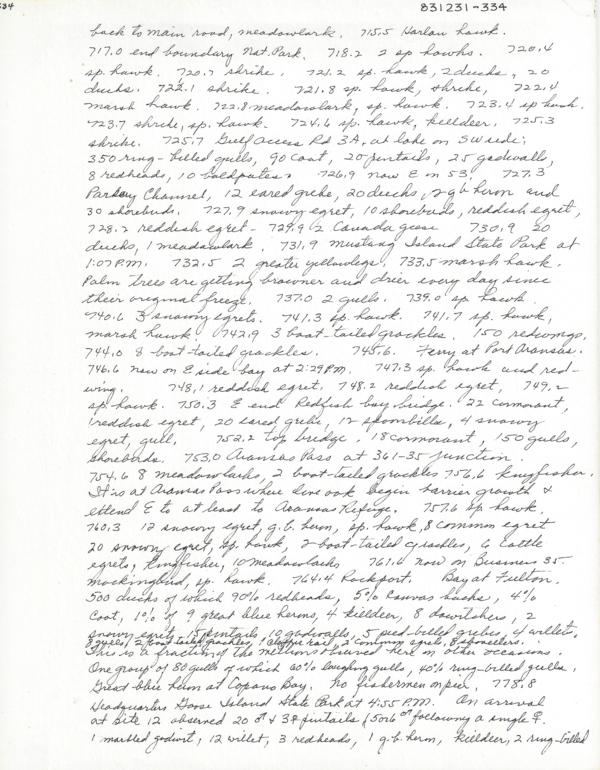 334
831231-334
back to main road, meadowlark. 715.5 Harlan hawk.
717.0 end boundary Nat. Park. 718.2 2 sp hawks. 720.4
sp. hawk. 720.7 shrike. 721.2 sp. hawk, 2 ducks, 20
ducks. 722.1 shrike. 721.8 sp. hawk, shrike, 722.4
marsh hawk. 722.8 meadowlark, sp. hawk. 723.4 sp hawk.
723.7 shrike, sp. hawk. 724.6 sp. hawk, killdeer. 725.3
shrike. 725.7 Gulf access Rd 3A, at lake on SW side;
350 ring-billed gulls, 90 coot, 20 pintails, 25 gadwalls,
8 redheads, 10 baldpates. 726.9 now E on 53, 727.3
Channel, 12 eared grebe, 20 ducks, 2 g b heron and
30 shorebirds. 727.9 snowy egret, 10 shorebirds, reddish egret,
728.2 reddish egret - 729.9 2 Canada geese 730.9 20
ducks, 1 meadowlark. 731.9 Mustang Island State Park at
1:07 P.M. 732.5 2 greater yellowlegs, 733.5 marsh hawk.
Palm trees are getting browner and drier every day since
their original freeze. 737.0 2 gulls. 739.0 sp. hawk.
740.6 3 snowy egrets. 741.3 sp. hawk. 741.7 sp. hawk,
marsh hawk. 742.9 3 boat-tailed grackles. 150 redwings.
744.0 8 boat-tailed grackles. 745.6. Ferry at Port Aransas.
746.6 now on E side bay at 2:29 P.M. 747.3 sp. hawk and red-
wing. 748.1 reddish egret. 748.2 reddish egret, 749.2
sp. hawk. 750.3 E end Redfish bay bridge. 22 cormorant,
1 reddish egret, 20 eared grebe, 12 spoonbills, 4 snowy
egret, gull. 752.2 top bridge. 18 cormorant, 150 gulls,
shorebirds. 753.0 Aransas Pass at 361-35 junction.
754.6 8 meadowlarks, 2 boat-tailed grackles 756.6 kingfisher.
It is at Aransas Pass where live oak begin barrier growth &
extend E to at least to Aransas Refuge. 757.6 sp. hawk.
760.3 12 snowy egret, g.b. heron, sp. hawk, 8 common egret
20 snowy egret, sp. hawk, 2 boat-tailed grackles, 6 cattle
egrets, kingfisher, 10 meadowlarks 761.6 now on Business 35.
mockingbird, sp. hawk. 764.4 Rockport. Bay at Fulton.
500 ducks of which 90% redheads, 5% canvas backs, 4%
coot, 1% of 9 great blue herons, 4 killdeer, 8 dowitchers, 2
snowy egrets, 15 pintails, 10 gadwalls, 5 pied-billed grebes, 4 willets,
2 boat tailed grackles, 1 clapper rail, 2 common egret, 8 shovellers.
This is a fraction of the millions observed here on other occasions.
One group of 80 gulls of which 60% laughing gulls, 40% ring-billed gulls.
Great blue heron at Copano Bay. No fishermen on pier. 778.8
Headquarters Goose Island State Park at 4:55 P.M. On arrival
at site 12 observed 20 ♂ & 3 ♀ pintails (5 or 6 ♂ following a single ♀.
1 marbled godwit, 12 willet, 3 redheads, 1 g.b. heron, killdeer, 2 ring-billed